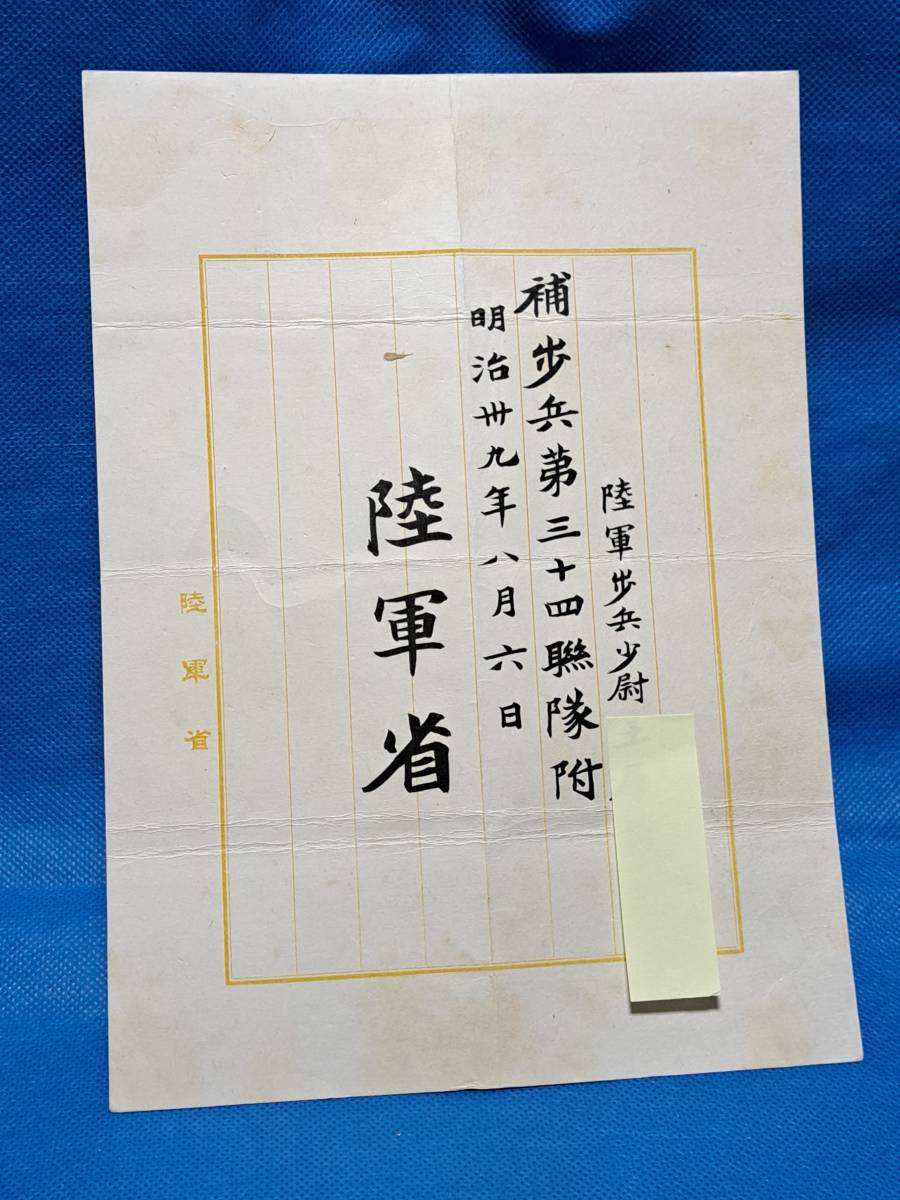 陸軍歩兵少尉
補歩兵第三十四聯隊附
明治卅九年八月六日
陸軍省
陸軍省